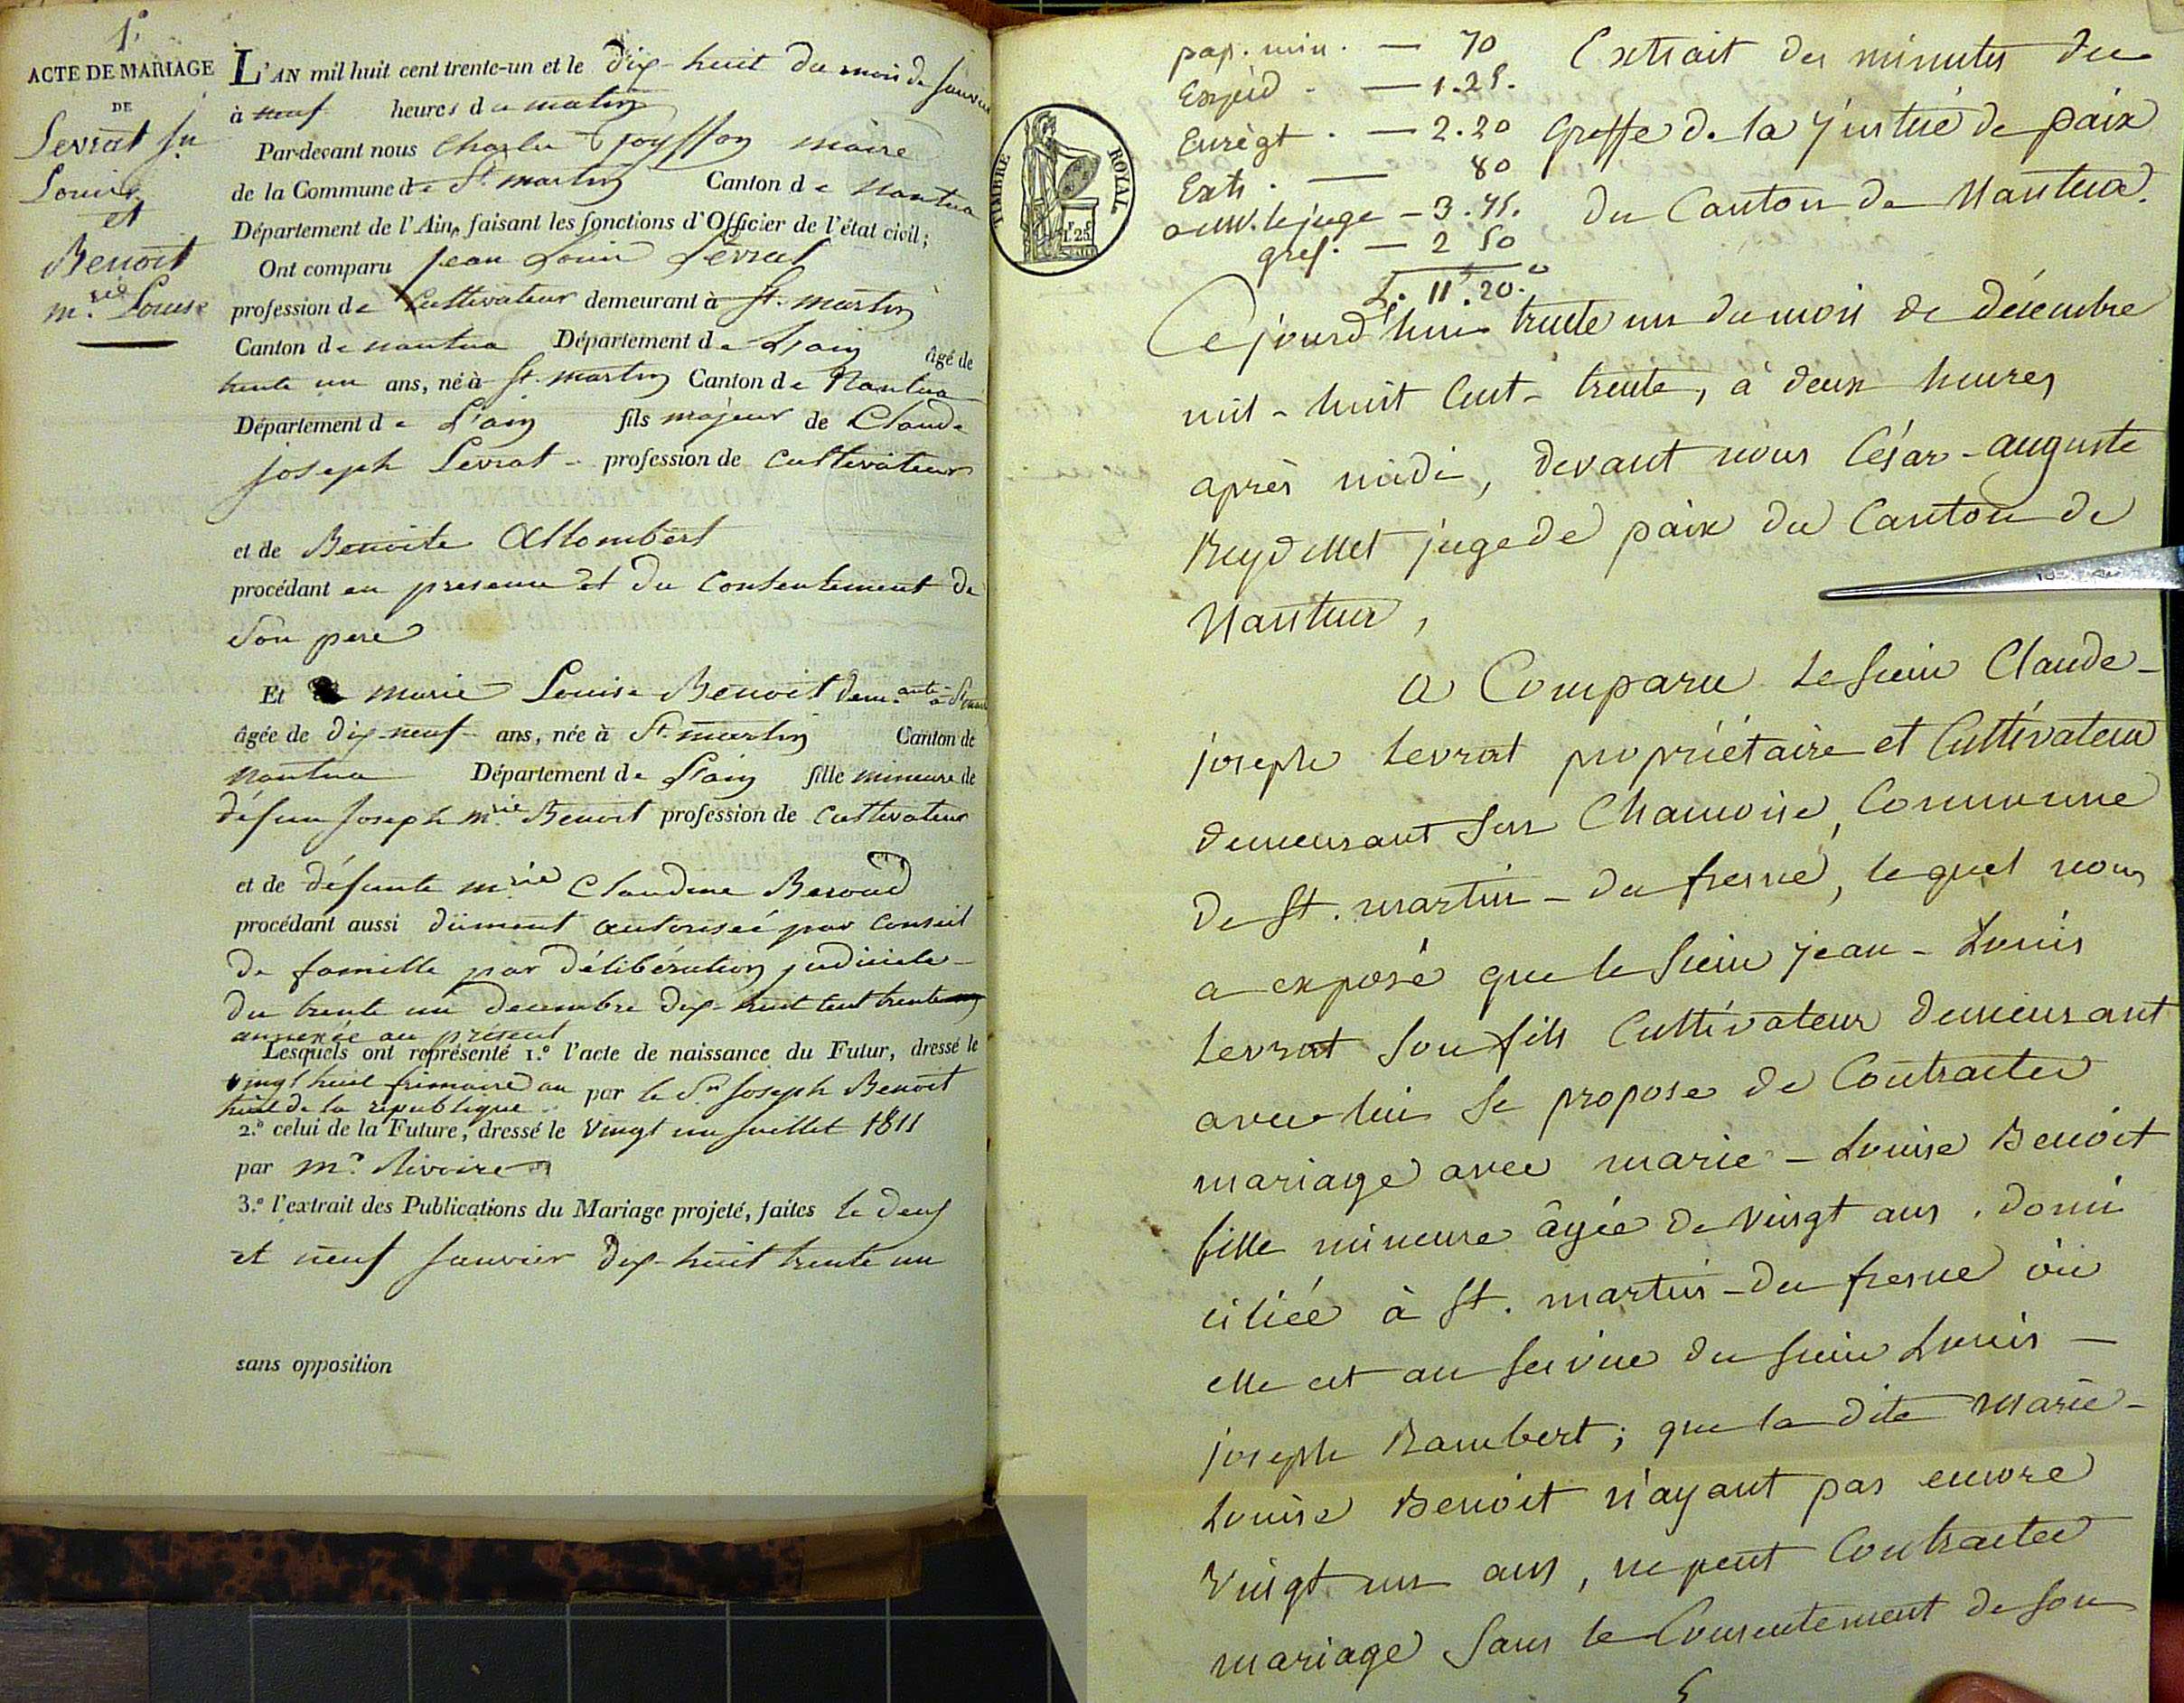 1°
ACTE DE MARIAGE
DE
Levrat Jn
Louis
et
Benoit
m.rie Louise
L'AN mil huit cent trente-un et le dix-huit du mois de Janvier
à neuf heures du matin
Par-devant nous Charles Joyffon maire
de la Commune de St. martin Canton de Nantua
Département de l'Ain, faisant les fonctions d'Officier de l'état civil;
Ont comparu jean Louis Levrat
profession de Cultivateur demeurant à St. martin
Canton de nantua Département de L'ain âgé de
trente un ans, né à St. martin Canton de Nantua
Département de L'ain fils majeur de Claude
joseph Levrat - profession de Cultivateur
et de Benoite Allombert
procédant en presence et du Consentement de
Son pere
Et marie Louise Benoit dem.ante à St martin
âgée de dix-neuf ans, née à St. martin Canton de
Nantua Département de L'ain fille mineure de
défun Joseph m.rie Benoit profession de Cultivateur
et de défunte m.rie Claudine Beroud
procédant aussi dument autorisée par Conseil
de famille par délibération judiciele
du trente un decembre dix-huit cent trente
annexée au présent
Lesquels ont représenté 1.° l'acte de naissance du Futur, dressé le
vingt huit frimaire an
huit de la république par le Sr Joseph Benoit
2.° celui de la Future, dressé le Vingt un Juillet 1811
par mr. Rivoire
3.° l'extrait des Publications du Mariage projeté, faites le deux
et neuf Janvier dix-huit trente un
sans opposition
pap. min. — 70
Expéd. — 1.25.
Enrègt. — 2.20
Extr. — 80
au M. le juge — 3.75.
gref. — 2 50
11.20.
TIMBRE ROYAL
1F 25C
Extrait des minutes du
Greffe de la Justice de paix
du Canton de Nantua.
Cejourd'hui trente un du mois de décembre
mil-huit Cent-trente, à deux heures
après midi, devant nous César-auguste
Reydellet juge de paix du Canton de
Nantua,
a Comparu le sieur Claude-
joseph Levrat propriétaire et Cultivateur
demeurant sur Chamoise, Commune
de St. martin-du fresne, lequel nous
a exposé que le sieur jean-Louis
Levrat son fils Cultivateur demeurant
avec lui se propose de Contracter
mariage avec marie-Louise Benoit
fille mineure âgée de vingt ans, domi
ciliée à St. martin-du fresne où
elle est au service du sieur Louis-
joseph Rambert; que la dite Marie-
Louise Benoit n'ayant pas encore
Vingt un ans, ne peut Contracter
mariage sans le Consentement de son